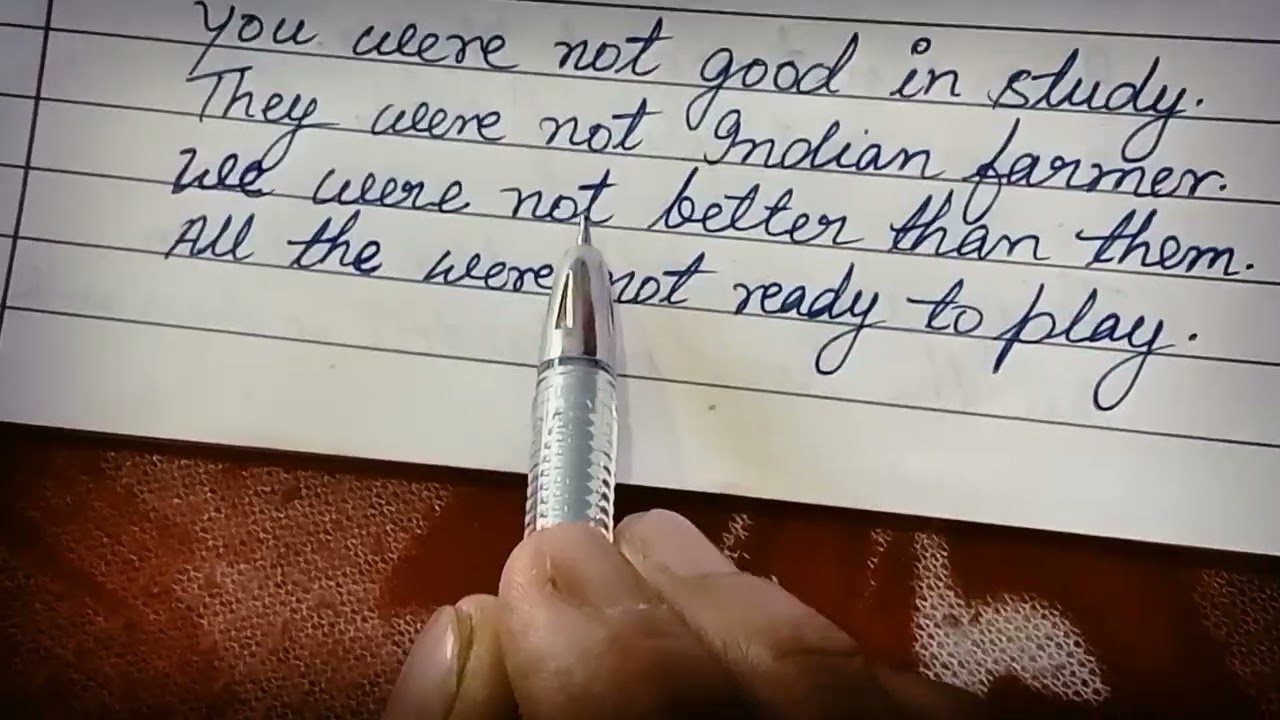 You were not good in study.
They were not Indian farmer.
We were not better than them.
All the were not ready to play.